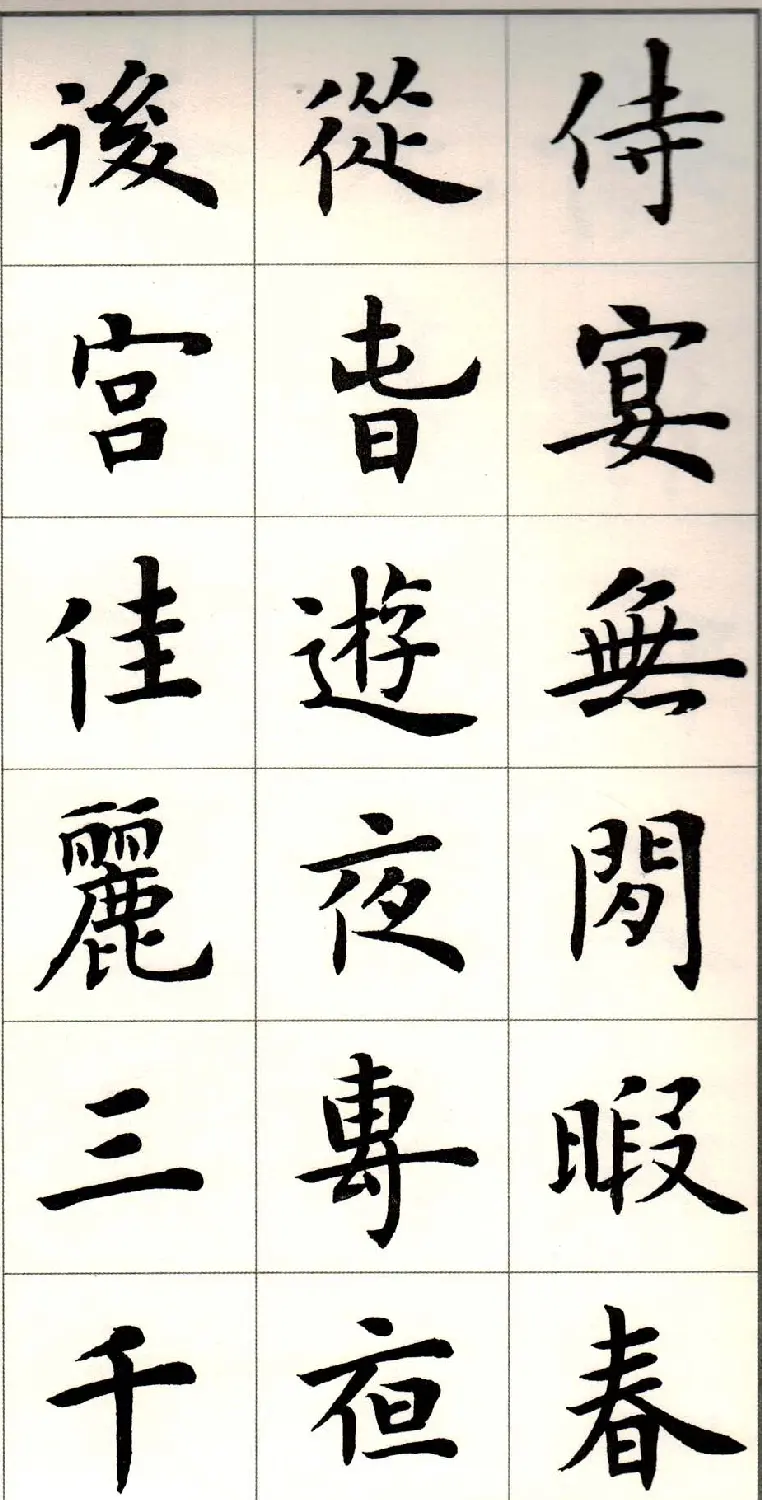 侍宴無閒暇春
從旾遊夜專夜
後宮佳麗三千